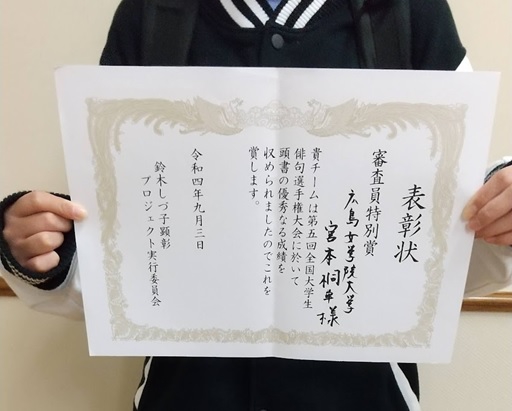 表彰状
審査員特別賞
広島女学院大学
宮本桐 様
貴チームは第五回全国大学生
俳句選手権大会に於いて
頭書の優秀なる成績を
収められましたのでこれを
賞します。
令和四年九月三日
鈴木しづ子顕彰
プロジェクト実行委員会